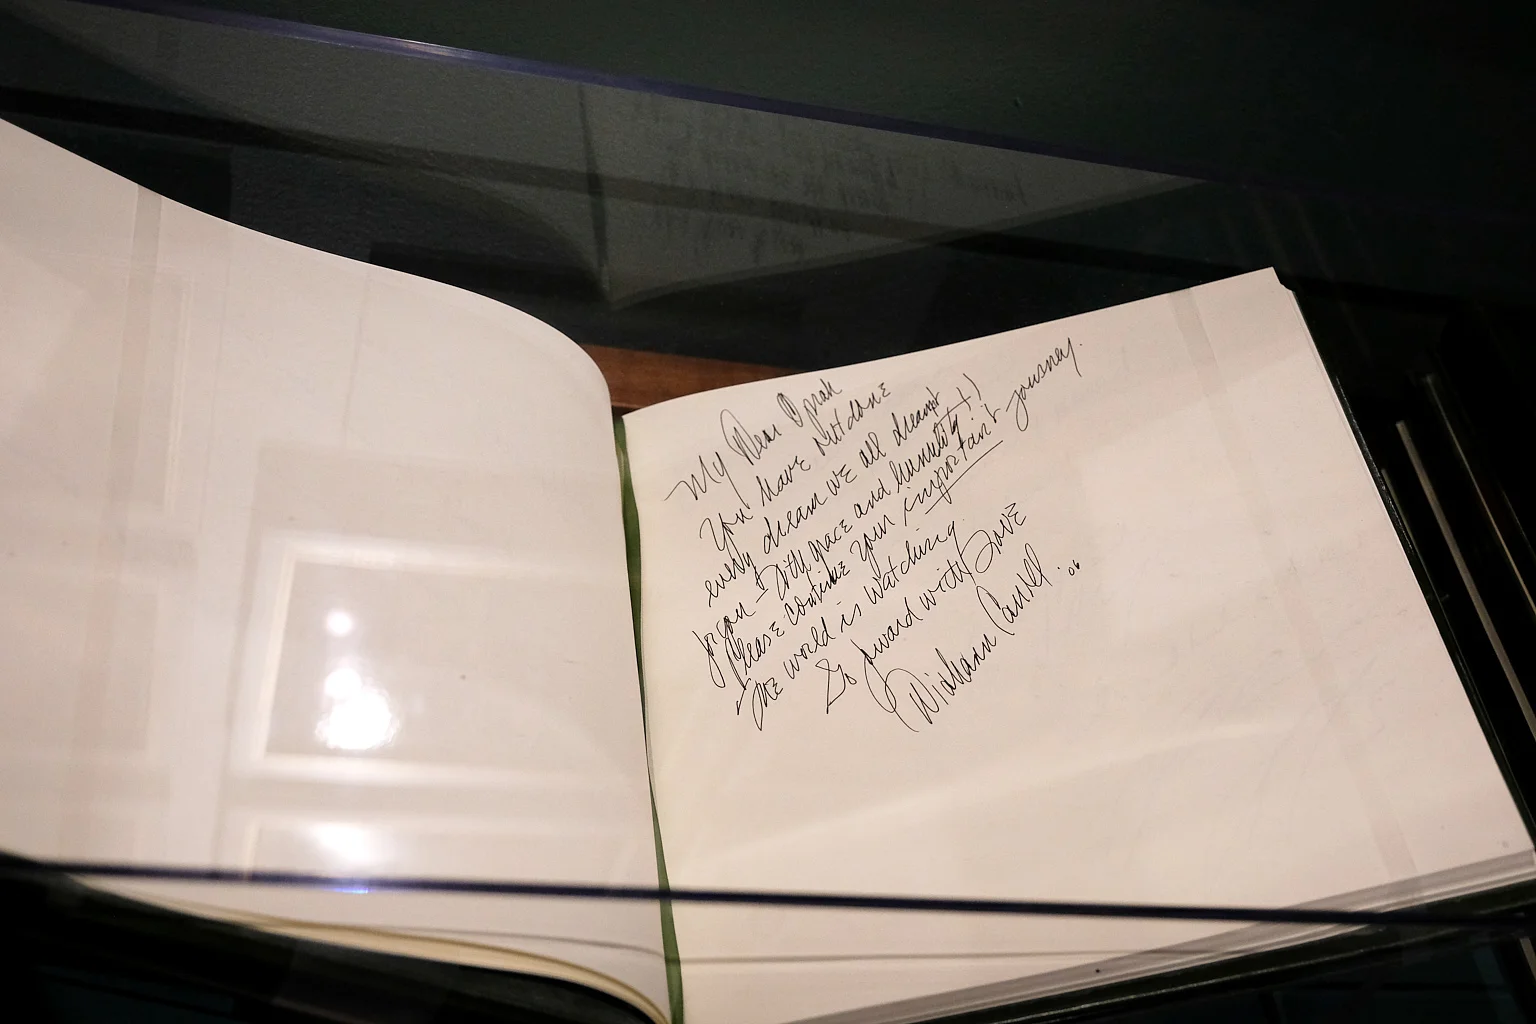 My Dear Oprah
You have outdone
every dream we all dreamt
for you – with grace and humility +)
Please continue your important journey.
The world is watching
So Award with Love
Diahann Carroll '06